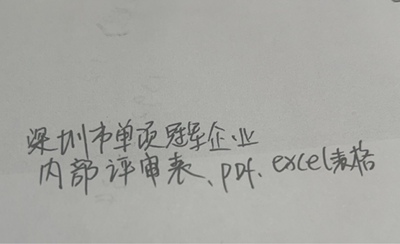 深圳市单项冠军企业
内部评审表、pdf、excel表格